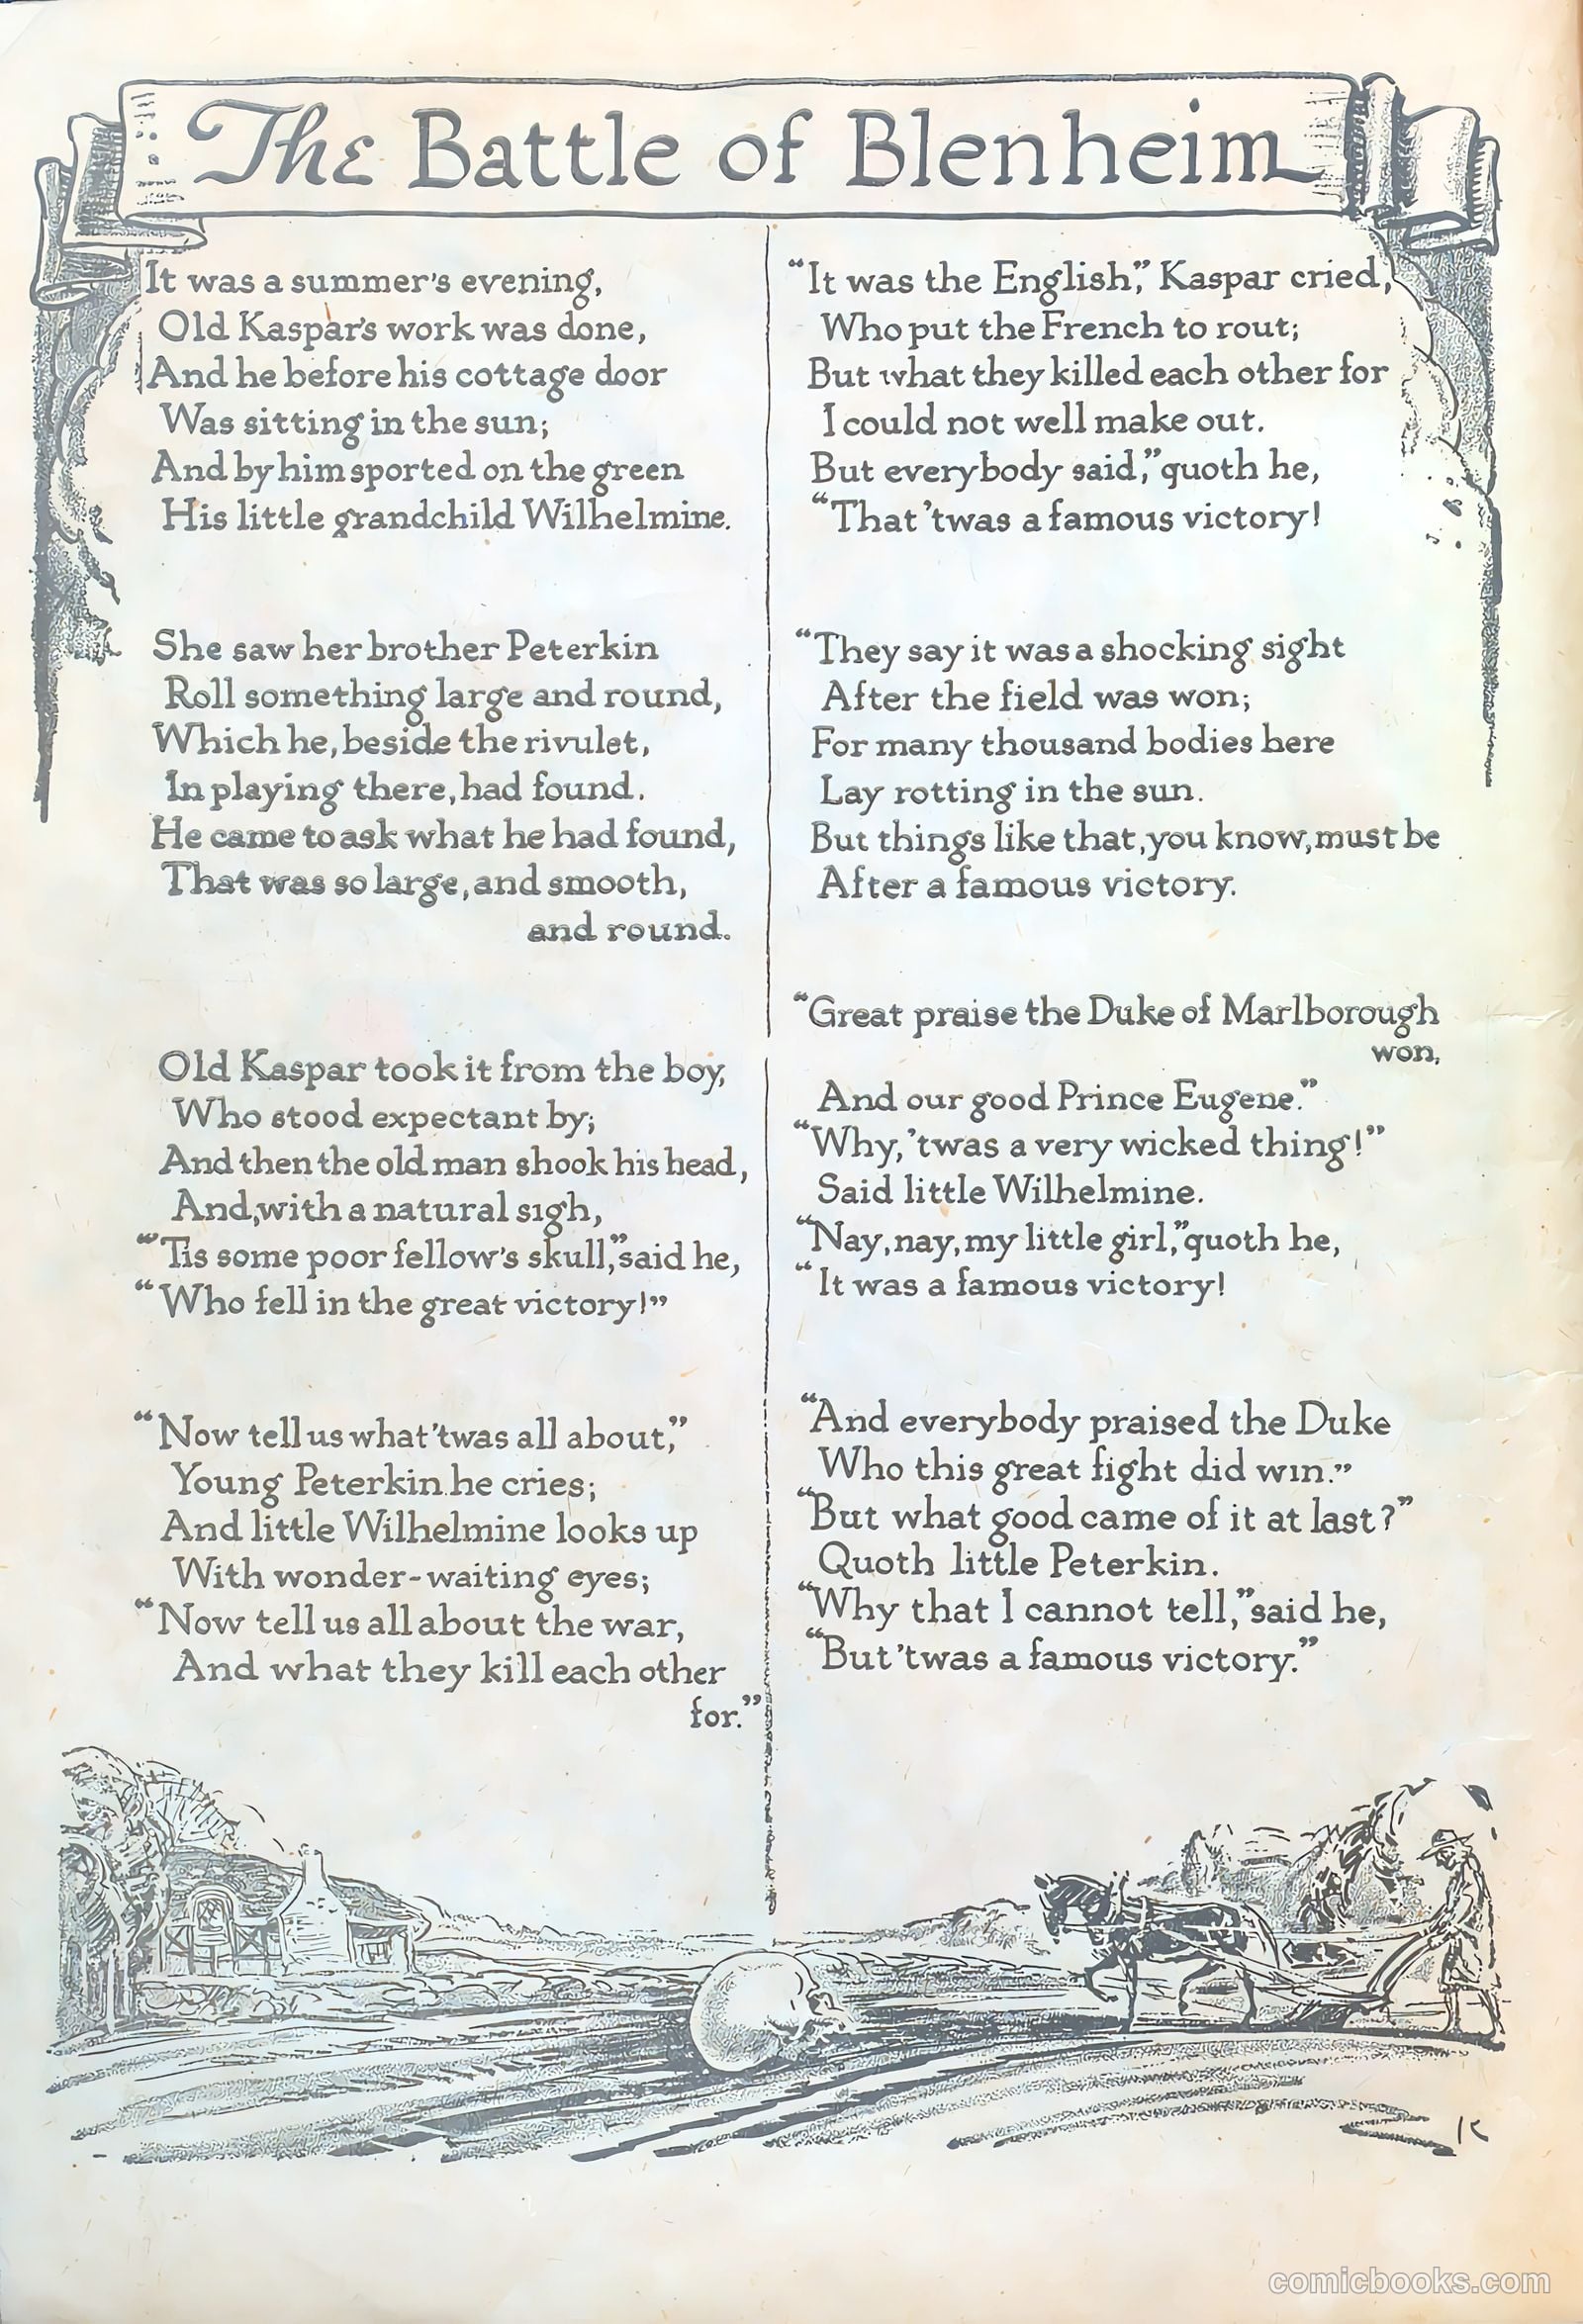 The Battle of Blenheim
It was a summer's evening,
Old Kaspar's work was done,
And he before his cottage door
Was sitting in the sun;
And by him sported on the green
His little grandchild Wilhelmine.
She saw her brother Peterkin
Roll something large and round,
Which he, beside the rivulet,
In playing there, had found.
He came to ask what he had found,
That was so large, and smooth,
and round.
Old Kaspar took it from the boy,
Who stood expectant by;
And then the old man shook his head,
And, with a natural sigh,
"'Tis some poor fellow's skull," said he,
"Who fell in the great victory!"
"Now tell us what 'twas all about,"
Young Peterkin he cries;
And little Wilhelmine looks up
With wonder-waiting eyes;
"Now tell us all about the war,
And what they kill each other
for."
"It was the English," Kaspar cried,
Who put the French to rout;
But what they killed each other for
I could not well make out.
But everybody said," quoth he,
"That 'twas a famous victory!
"They say it was a shocking sight
After the field was won;
For many thousand bodies here
Lay rotting in the sun.
But things like that, you know, must be
After a famous victory.
"Great praise the Duke of Marlborough
won,
And our good Prince Eugene."
"Why, 'twas a very wicked thing!"
Said little Wilhelmine.
"Nay, nay, my little girl," quoth he,
"It was a famous victory!
"And everybody praised the Duke
Who this great fight did win."
"But what good came of it at last?"
Quoth little Peterkin.
"Why that I cannot tell," said he,
"But 'twas a famous victory."
K
comicbooks.com